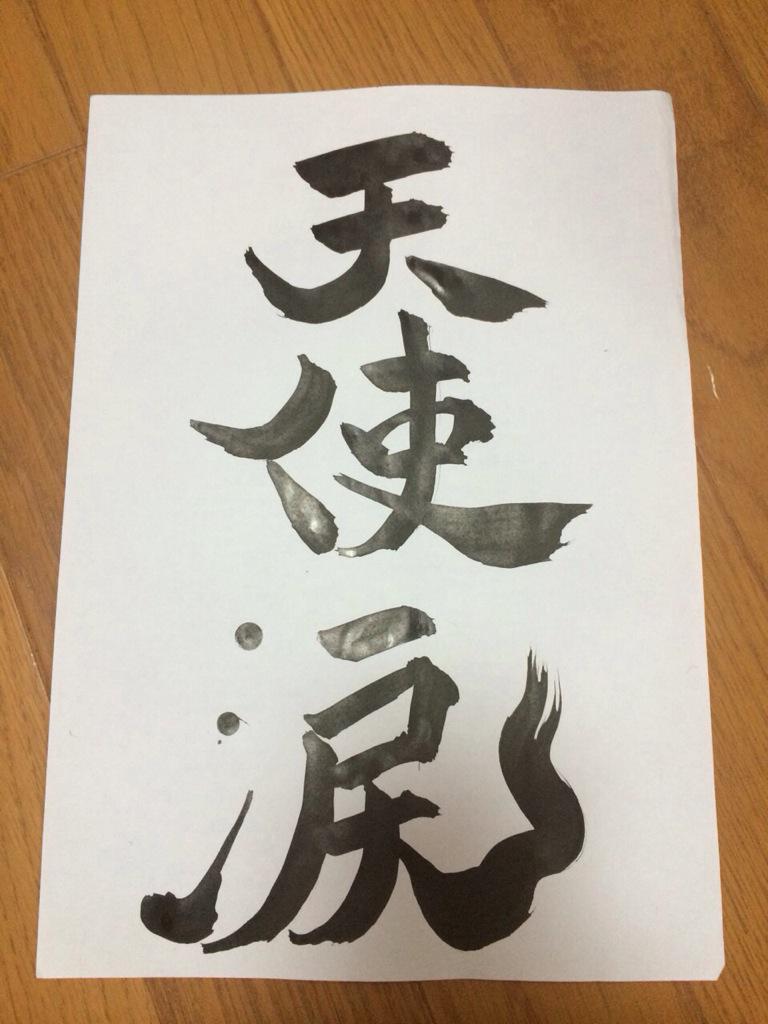 天使涙